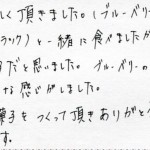 しく頂きました。(ブルーベリー
ラック)と一緒に食べましたが
だと思いました。ブルーベリーの
る感じがしました。
菓子をつくって頂きありがと
す。